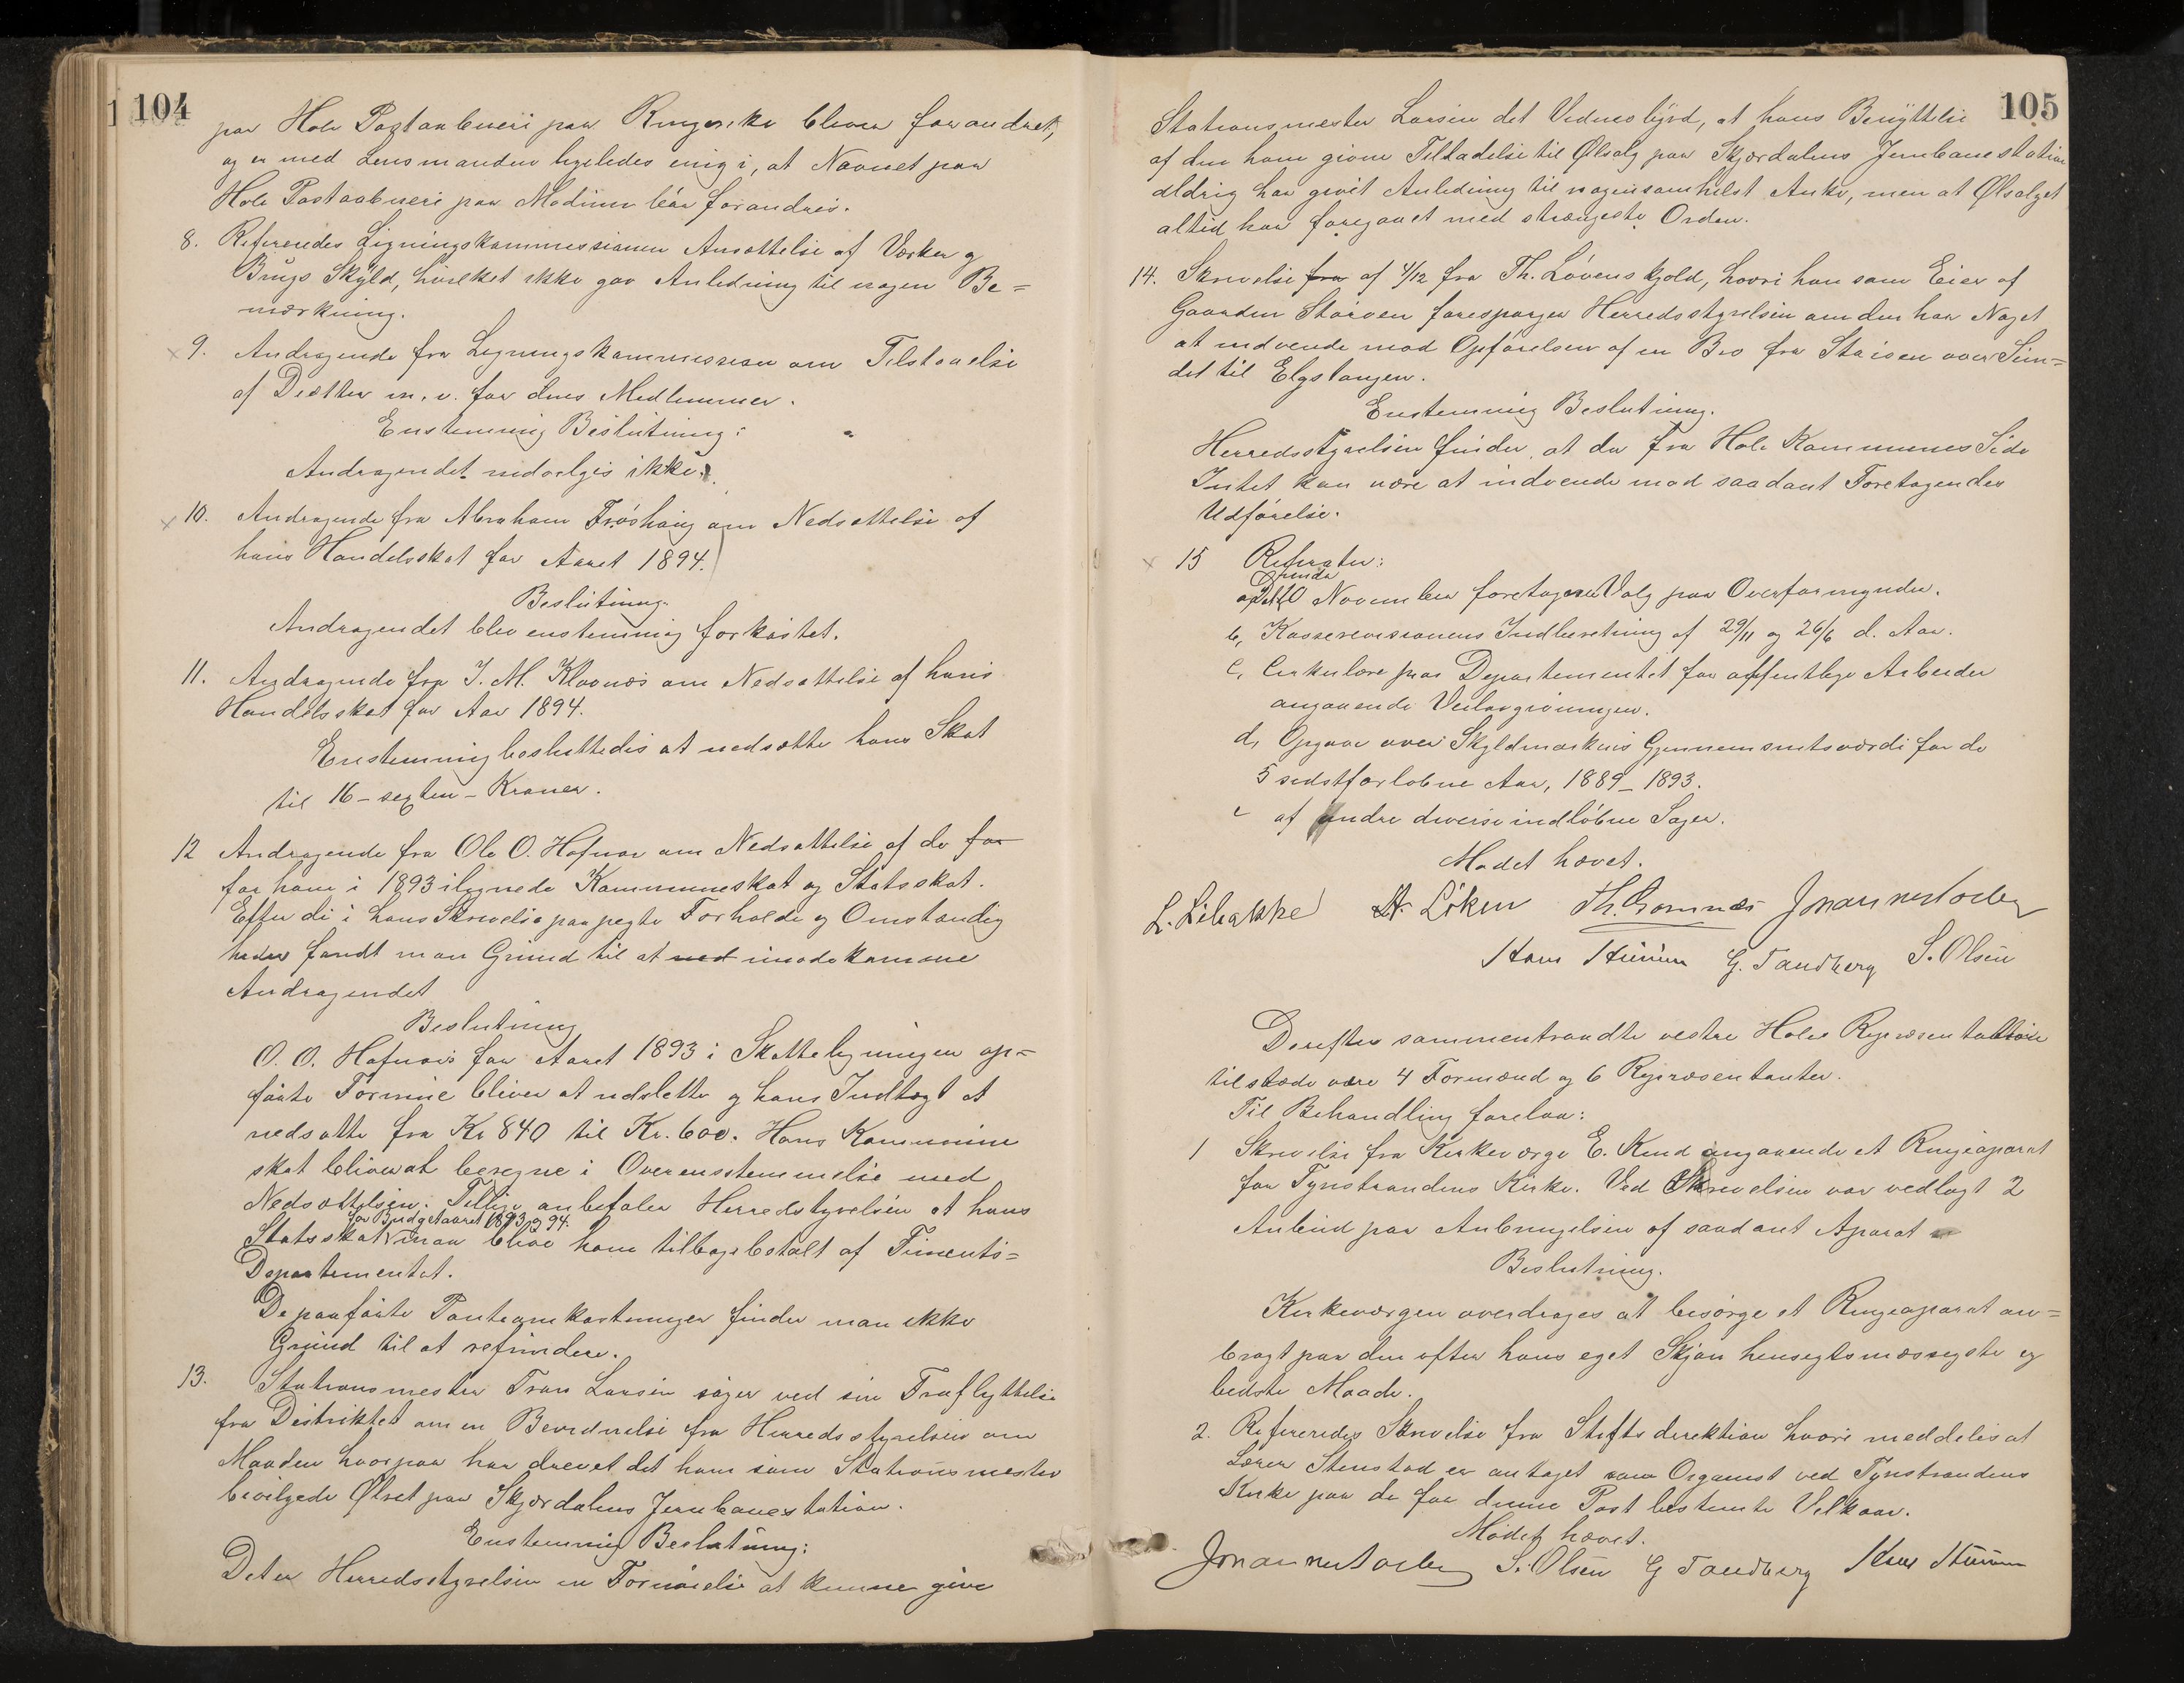 104
paa Hole Postaabneri paa Ringerike bliver forandret,
og er med Lensmanden ligeledes enig i, at Navnet paa
Hole Postaabneri paa Modum bør forandres.
8. Refereredes Ligningskommissionen Ansættelse af Verker og
Brugs Skyld, hvilket ikke gav Anledning til nogen Be=
mærkning.
9. Andragende fra Ligningskommissionen om Tilstaaelse
af Diætter m. v. for dens Medlemmer.
Enstemmig Beslutning:
Andragendet indvilges ikke.
10. Andragende fra Abraham Frøshaug om Nedsættelse af
hans Handelsskat for Aaret 1894.
Beslutning.
Andragendet blev enstemmig forkastet.
11. Andragende fra J. M. Klovnæs om Nedsættelse af hans
Handelsskat for Aar 1894.
Enstemmig besluttedes at nedsætte hans Skat
til 16 - sexten - Kroner.
12 Andragende fra Ole O. Hafnor om Nedsættelse af de for
for ham i 1893 ilignede Kommuneskat og Statsskat.
Efter de i hans Skrivelse paapegte Forholde og Omstændig
heder fandt man Grund til at ned imødekomme
Andragendet
Beslutning
O. O. Hafnors for Aaret 1893 i Skatteligningen op=
førte Formue bliver at udslette og hans Indtægt at
nedsætte fra Kr 840 til Kr. 600. Hans Kommune
skat bliver at beregne i Overensstemmelse med
Nedsættelsen. Tillige anbefaler Herredsstyrelsen at hans
for Budgetaaret 1893 94
Statsskat maa blive ham tilbagebetalt af Finants=
Departementet.
De paaførte Panteomkostninger finder man ikke
Grund til at refundere.
13. Stationsmester Larsen søger ved sin Fraflyttelse
fra Distriktet om en Bevidnelse fra Herredsstyrelsen om
Maaden hvorpaa har drevet det ham som Stationsmester
bevilgede Ølret paa Skjærdalens Jernbanestation.
Enstemmig Beslutning:
Det er Herredsstyrelsen en Fornøielse at kunne give
105
Stationsmester Larsen det Vidnesbyrd, at hans Benyttelse
af den ham givne Tilladelse til Ølsalg paa Skjærdalens Jernbanestation
aldrig har givet Anledning til nogensomhelst Anke, men at Ølsalget
altid har foregaaet med strængeste Orden.
14. Skrivelse fra af 4/12 fra Th. Løvenskjold, hvori han som Eier af
Gaarden Størøen forespørger Herredsstyrelsen om den har Noget
at indvende mod Opførelsen af en Bro fra Størøen over Sun=
det til Elgstangen.
Enstemmig Beslutning.
Herredsstyrelsen finder, at der fra Hole Kommunes Side
Intet kan være at indvende mod saadant Foretagendes
Udførelse.
15 Referater:
November foretagne Valg paa Overformynder.
b, Kasserevisionens Indberetning af 29/11 og 26/6 d. Aar.
c, Cirkulære fra Departementet for offentlige Arbeider
angaaende Veilovgivningen.
d, Opgave over Skyldmarkens Gjennemsnitsværdi for de
5 sidstforløbne Aar, 1889 - 1893.
e af andre diverse indløbne Sager.
Mødet hævet.
L. Libakke A. Løken Th. Gomnæs
Hans Hurum G. Tandberg S. Olsen
Derefter sammentraadte vestre Holes Repræsentation
tilstede være 4 Formænd og 6 Repræsentanter.
Til Behandling forelaa:
1 Skrivelse fra Kirkeværge E. Rud angaaende et Ringeaparat
for Tyristrandens Kirke. Ved Skrivelsen var vedlagt 2
Anbud paa Anbringelsen af saadant Aparat
Beslutning.
Kirkeværgen overdrages at besørge et Ringeaparat an=
bragt paa den efter hans eget Skjøn hensigtsmæssigste og
bedste Maade.
2. Refereredes Skrivelse fra Stiftsdirektion hvori meddeles at
Lærer Stenstad er antaget som Organist ved Tyristrandens
Kirke paa de for denne Post bestemte Vilkaar.
Mødet hævet.
S. Olsen G Tandberg Hans Hurum